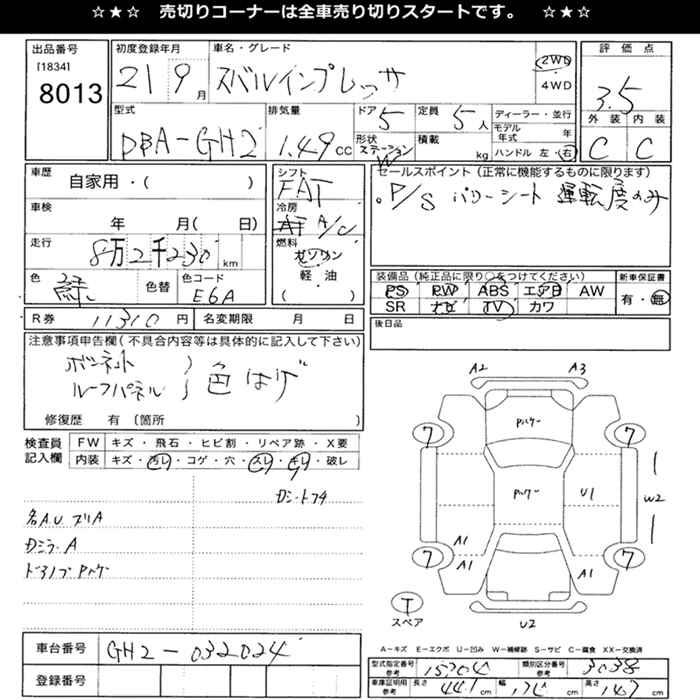 ☆★☆ 売切りコーナーは全車売り切りスタートです。 ☆★☆
出品番号
[1834]
8013
初度登録年月
21 9月
車名・グレード
スバルインプレッサ
2WD
・
4WD
評価点
3.5
外装 内装
C C
型式
DBA-GH2
排気量
1.49cc
ドア
5
定員
5人
形状
ステーション
W
積載
kg
ディーラー・並行
モデル年式 年
ハンドル 左・右
車歴
自家用・( )
車検
年 月( 日)
走行
8万2千230km
色
緑
色替
色コード
E6A
シフト
FAT
冷房
A/C
燃料
ガソリン
軽・油
( )
セールスポイント(正常に機能するものに限ります)
P/S パワーシート
装備品(純正品に限り○をつけてください)
PS PW ABS エアB AW
SR ナビ TV カワ
新車保証書
有・無
後日品
R券 11310円
名変期限 月 日
注意事項申告欄(不具合内容等は具体的に記入して下さい)
ボンネット
ルーフパネル 色はげ
修復歴 有(箇所 )
検査員
記入欄
FW キズ・飛石・ヒビ割・リペア跡・X要
内装 キズ・汚レ・コゲ・穴・スレ・キレ・破レ
各A.U ズリA
A2 A3
7 7
U1
W2
A1 A1
7 7
A1 A1
T
スペア
U2
A-キズ E-エクボ U-凹み W-補修跡 S-サビ C-腐食 XX-交換済
車台番号 GH2-032024
登録番号
型式指定番号
参考
15704
類別区分番号
参考
3038
車庫証明用
参考
長さ 441cm 幅 174cm 高さ 147cm